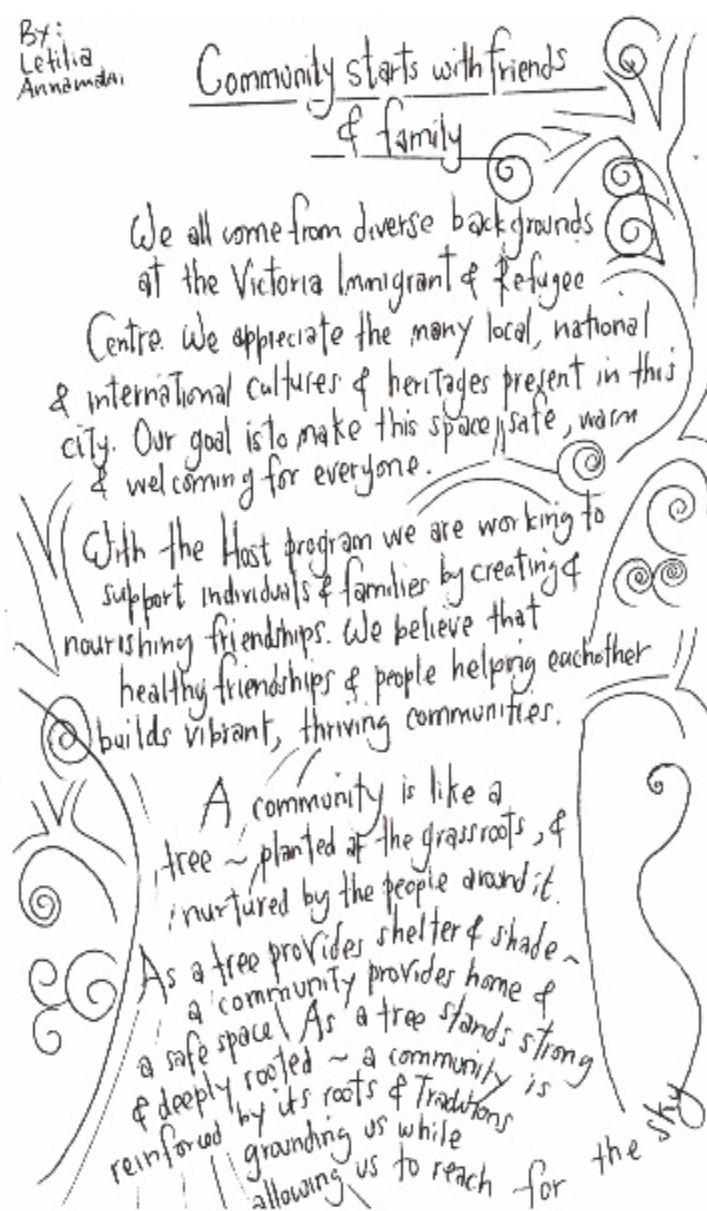 By:
Letilia
Annamalai
Community starts with friends
& family
We all come from diverse backgrounds
at the Victoria Immigrant & Refugee
Centre. We appreciate the many local, national
& international cultures & heritages present in this
city. Our goal is to make this space safe, warm
& welcoming for everyone.
With the Host program we are working to
support individuals & families by creating &
nourishing friendships. We believe that
healthy friendships & people helping eachother
builds vibrant, thriving communities.
A community is like a
tree ~ planted at the grassroots, &
nurtured by the people around it.
As a tree provides shelter & shade ~
a community provides home &
a safe space. As a tree stands strong
& deeply rooted ~ a community is
reinforced by its roots & Traditions
grounding us while
allowing us to reach for the sky